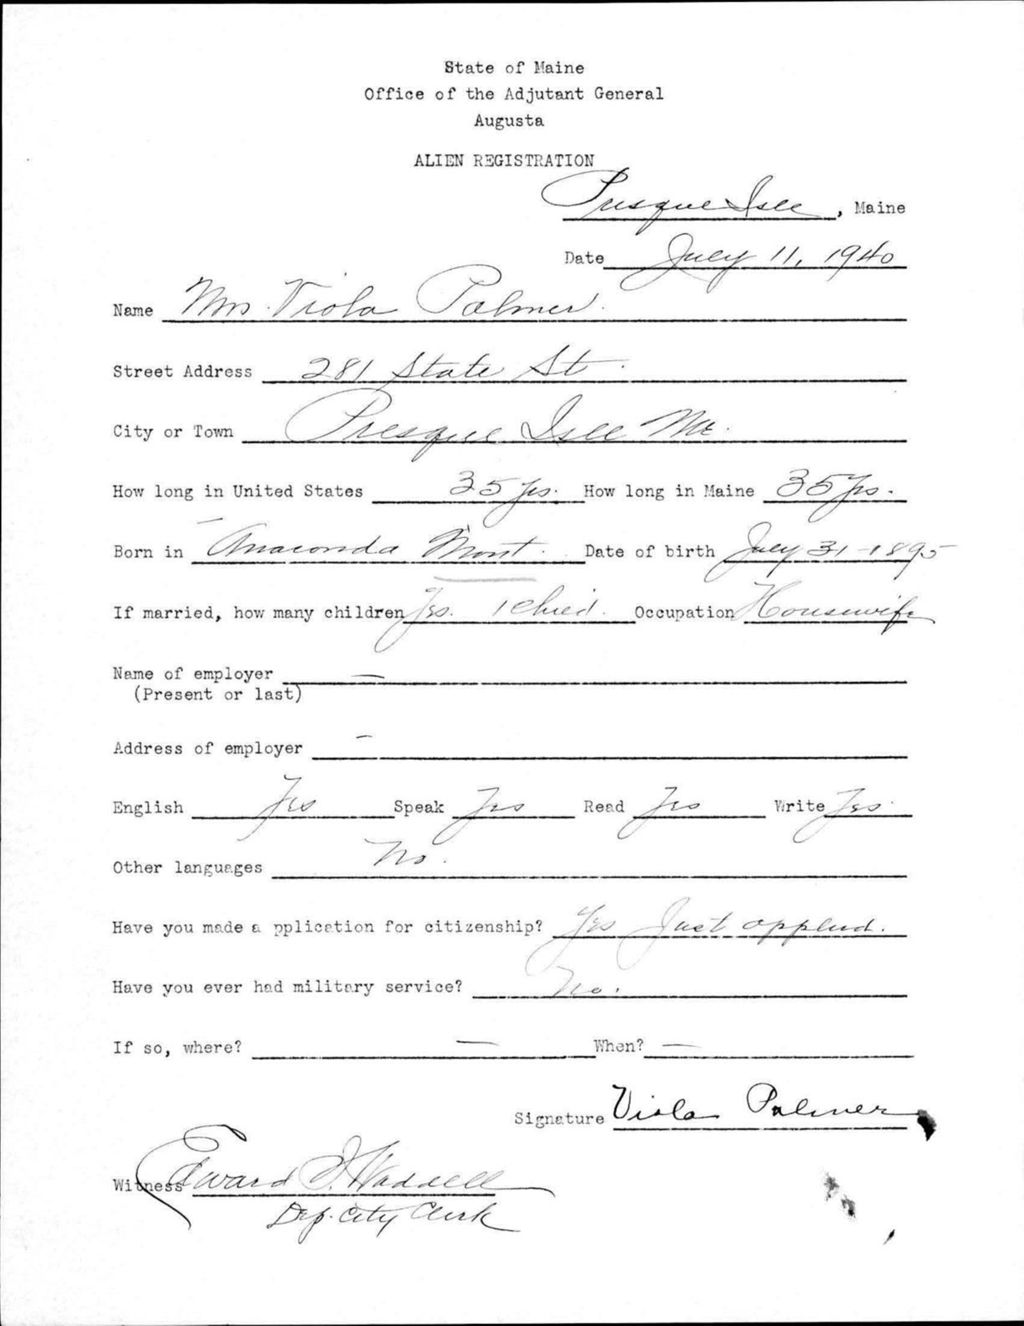 State of Maine
Office of the Adjutant General
Augusta
ALIEN REGISTRATION
Presque Isle, Maine
Date July 11, 1940
Name Mrs. Viola Palmer.
Street Address 281 State St.
City or Town Presque Isle Me.
How long in United States 35 yrs. How long in Maine 35 yrs.
Born in Anaconda Mont. Date of birth July 31-1895
If married, how many children Yes. 1 child. Occupation Housewife
Name of employer —
(Present or last)
Address of employer —
English Yes Speak Yes Read Yes Write Yes.
Other languages No.
Have you made a pplication for citizenship? Yes Just applied.
Have you ever had military service? No.
If so, where? — When? —
Signature Viola Palmer
Witness Edward I. Waddell
Dep. City Clerk